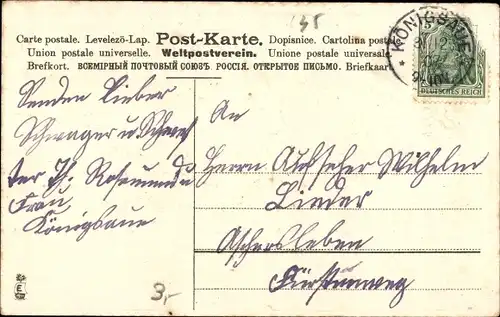 145
Carte postale. Levelezö-Lap. Post-Karte. Dopisnice. Cartolina postale.
Union postale universelle. Weltpostverein. Unione postale universale.
Brefkort. ВСЕМІРНЫЙ ПОЧТОВЫЙ СОЮЗЪ. РОССІЯ. ОТКРЫТОЕ ПИСЬМО. Briefkaart.
KÖNIGSAUE
DEUTSCHES REICH
Senden Lieber
Schwager u
ter Th. Rosemund u
Frau
Königsaue
An
Herrn Aufseher Wilhelm
Lieder
Aschersleben
3,-